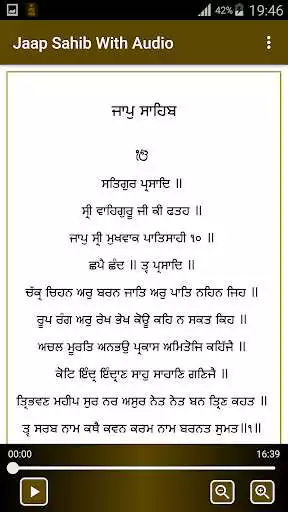 42% 19:46
Jaap Sahib With Audio
ਜਾਪੁ ਸਾਹਿਬ
ੴ
ਸਤਿਗੁਰ ਪ੍ਰਸਾਦਿ ॥
ਸ੍ਰੀ ਵਾਹਿਗੁਰੂ ਜੀ ਕੀ ਫਤਹ ॥
ਜਾਪੁ ਸ੍ਰੀ ਮੁਖਵਾਕ ਪਾਤਿਸਾਹੀ ੧੦ ॥
ਛਪੈ ਛੰਦ ॥ ਤ੍ਵ ਪ੍ਰਸਾਦਿ ॥
ਚੱਕ੍ਰ ਚਿਹਨ ਅਰੁ ਬਰਨ ਜਾਤਿ ਅਰੁ ਪਾਤਿ ਨਹਿਨ ਜਿਹ ॥
ਰੂਪ ਰੰਗ ਅਰੁ ਰੇਖ ਭੇਖ ਕੋਊ ਕਹਿ ਨ ਸਕਤ ਕਿਹ ॥
ਅਚਲ ਮੂਰਤਿ ਅਨਭਉ ਪ੍ਰਕਾਸ ਅਮਿਤੋਜਿ ਕਹਿੱਜੈ ॥
ਕੋਟਿ ਇੰਦ੍ਰ ਇੰਦ੍ਰਾਣ ਸਾਹੁ ਸਾਹਾਣਿ ਗਣਿਜੈ ॥
ਤ੍ਰਿਭਵਣ ਮਹੀਪ ਸੁਰ ਨਰ ਅਸੁਰ ਨੇਤ ਨੇਤ ਬਨ ਤ੍ਰਿਣ ਕਹਤ ॥
ਤ੍ਵ ਸਰਬ ਨਾਮ ਕਥੈ ਕਵਨ ਕਰਮ ਨਾਮ ਬਰਨਤ ਸੁਮਤ॥੧॥
00:00 16:39